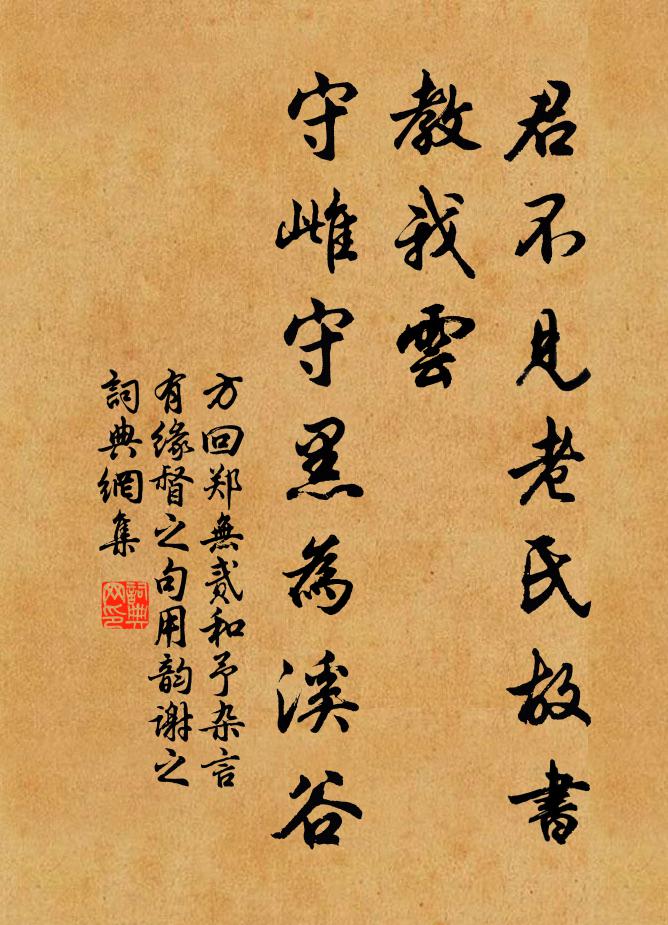 君不见老氏故書
教我雲
守雌守黑為溪谷
方回郑無贰和予杂言
有缘督之句用韵谢之
詞典網集
詞典网印